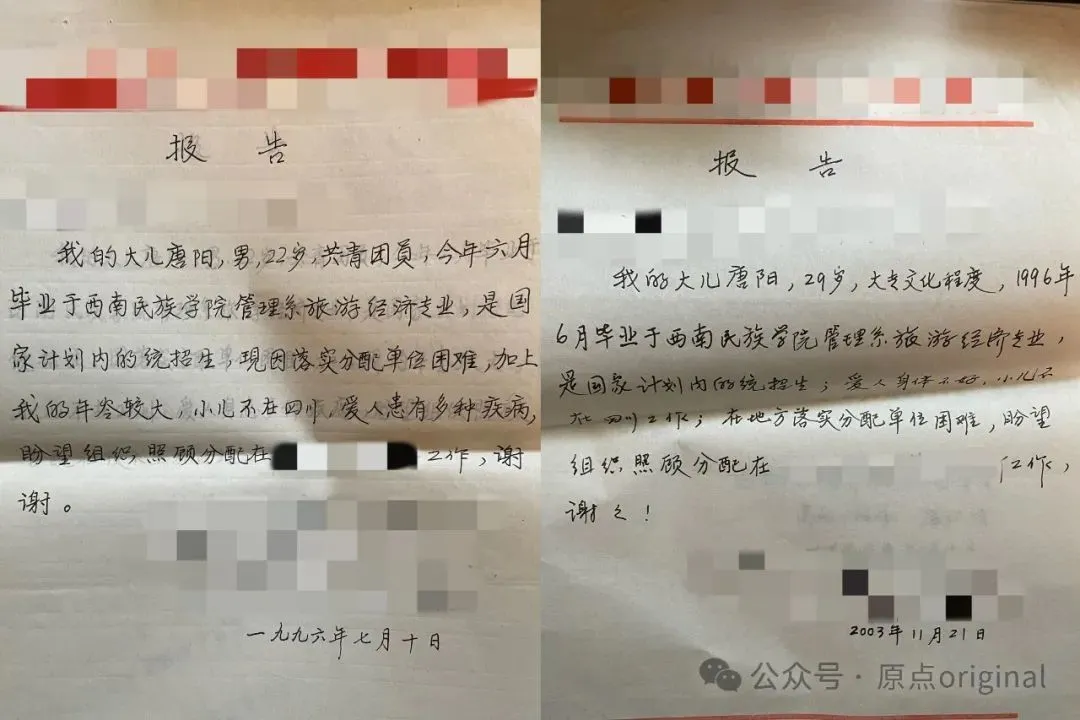 报 告
我的大儿唐阳,男,22岁,共青团员,今年六月
毕业于西南民族学院管理系旅游经济专业,是国
家计划内的统招生,现因落实分配单位困难,加上
我的年岁较大,小儿不在四川,爱人患有多种疾病,
盼望组织照顾分配在 工作,谢
谢。
一九九六年七月十日
报 告
我的大儿唐阳,29岁,大专文化程度,1996年
6月毕业于西南民族学院管理系旅游经济专业,
是国家计划内的统招生;爱人身体不好,小儿不
在四川工作;在地方落实分配单位困难,盼望
组织照顾分配在 工作,
谢之!
2003年11月21日
公众号·原点original